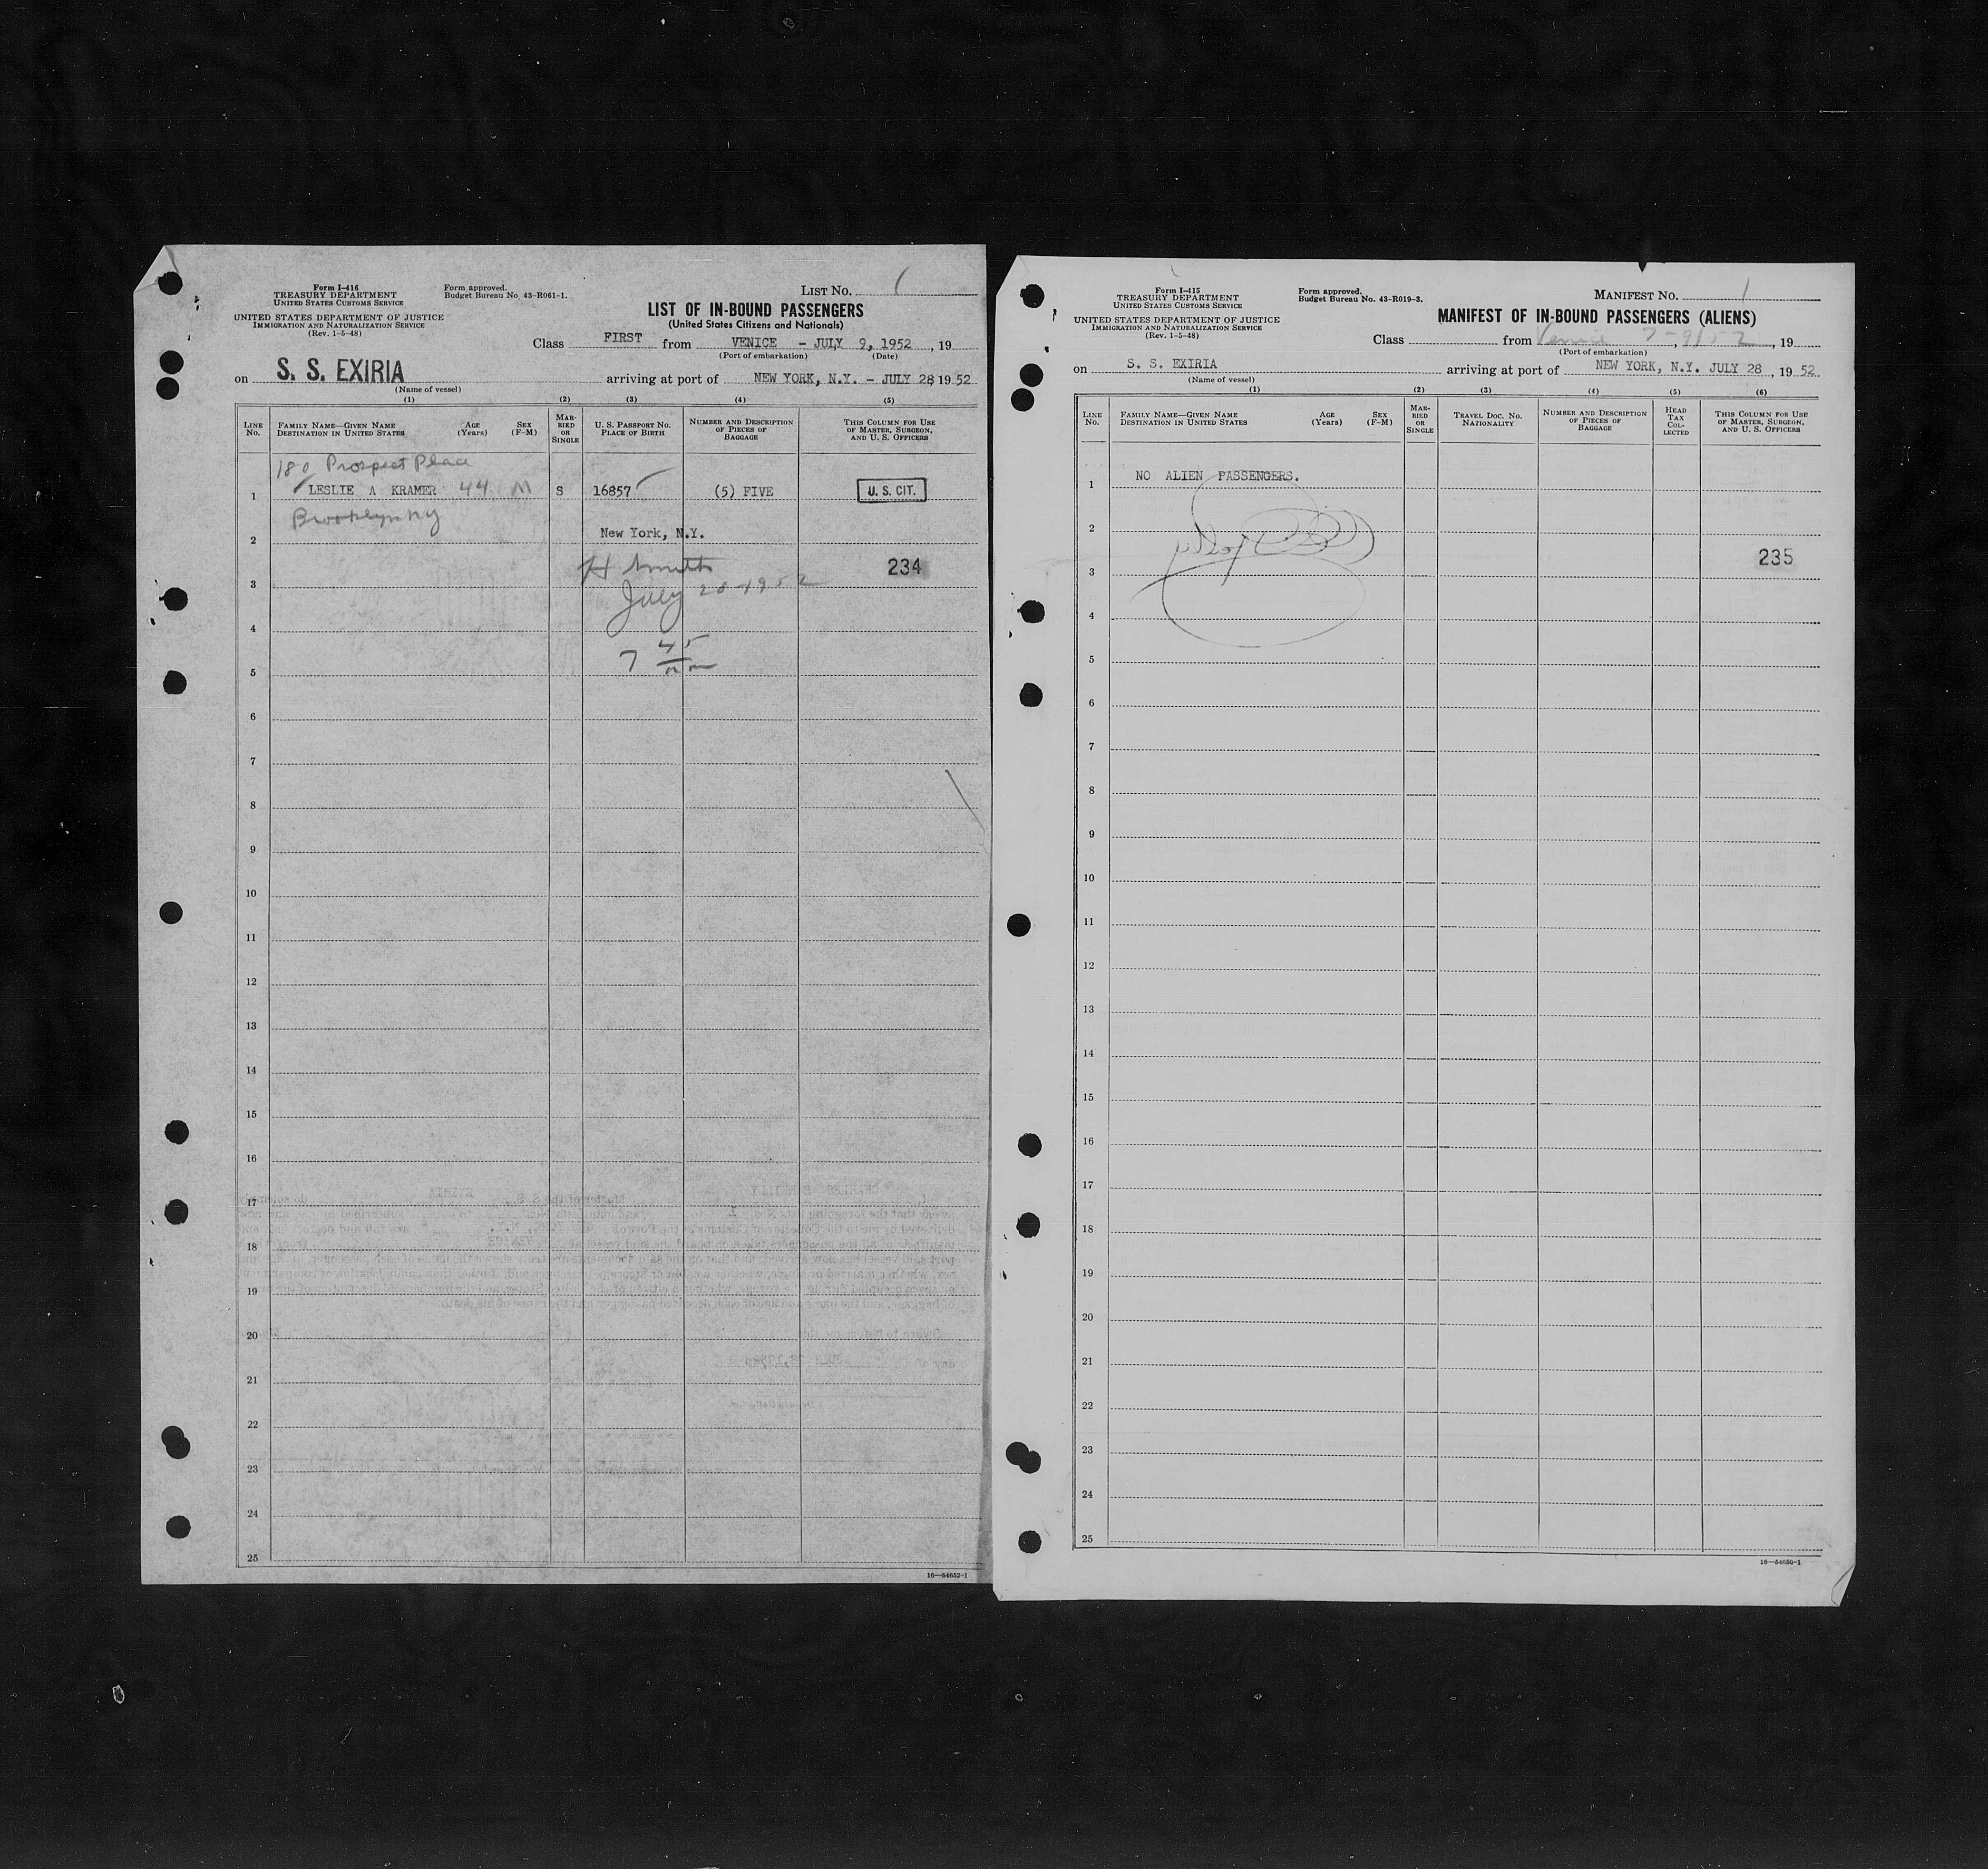 Form I-416
TREASURY DEPARTMENT
UNITED STATES CUSTOMS SERVICE
UNITED STATES DEPARTMENT OF JUSTICE
IMMIGRATION AND NATURALIZATION SERVICE
(Rev. 1-5-48)
Form approved.
Budget Bureau No. 43-R061-1.
LIST NO. 1
LIST OF IN-BOUND PASSENGERS
(United States Citizens and Nationals)
Class FIRST from VENICE - JULY 9, 1952, 19
(Port of embarkation) (Date)
on S. S. EXIRIA arriving at port of NEW YORK, N.Y. - JULY 28 19 52
(Name of vessel)
(1) (2) (3) (4) (5)
LINE NO. FAMILY NAME—GIVEN NAME DESTINATION IN UNITED STATES AGE (Years) SEX (F-M) MARRIED OR SINGLE U. S. PASSPORT NO. PLACE OF BIRTH NUMBER AND DESCRIPTION OF PIECES OF BAGGAGE THIS COLUMN FOR USE OF MASTER, SURGEON, AND U. S. OFFICERS
180 Prospect Place
1 LESLIE A KRAMER 44 M S 16857 (5) FIVE U. S. CIT.
Brooklyn NY
2 New York, N.Y.
H Smith 234
3 July 28-1952
4
7 45
5
6
7
8
9
10
11
12
13
14
15
16
17
18
19
20
21
22
23
24
25
16—54652-1
Form I-415
TREASURY DEPARTMENT
UNITED STATES CUSTOMS SERVICE
UNITED STATES DEPARTMENT OF JUSTICE
IMMIGRATION AND NATURALIZATION SERVICE
(Rev. 1-5-48)
Form approved.
Budget Bureau No. 43-R019-3.
MANIFEST NO. 1
MANIFEST OF IN-BOUND PASSENGERS (ALIENS)
Class from Venice 7-9/52, 19
(Port of embarkation)
on S. S. EXIRIA arriving at port of NEW YORK, N.Y. JULY 28, 19 52
(Name of vessel)
(1) (2) (3) (4) (5) (6)
LINE NO. FAMILY NAME—GIVEN NAME DESTINATION IN UNITED STATES AGE (Years) SEX (F-M) MARRIED OR SINGLE TRAVEL DOC. NO. NATIONALITY NUMBER AND DESCRIPTION OF PIECES OF BAGGAGE HEAD TAX COLLECTED THIS COLUMN FOR USE OF MASTER, SURGEON, AND U. S. OFFICERS
1 NO ALIEN PASSENGERS.
2
235
3
4
5
6
7
8
9
10
11
12
13
14
15
16
17
18
19
20
21
22
23
24
25
16—54650-1